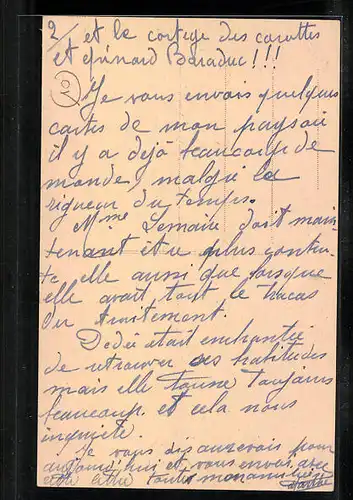 2/ et le cortège des carottes
et épinard Baraduc!!!
Je vous envois quelques
cartes de mon pays où
il y a déjà beaucoup de
monde, malgré la
rigueur du temps.
Mme Lemaire doit main
tenant être plus conten
te elle aussi que lorsque
elle avait, tout le tracas
du traitement.
Dédée était enchantée
de retrouver ses habitudes
mais elle tousse toujours
beaucoup et cela nous
inquiète.
Je vous dis au revoir pour
aujourd'hui et vous envoie avec
cette lettre toutes mes amitiés
Marthe